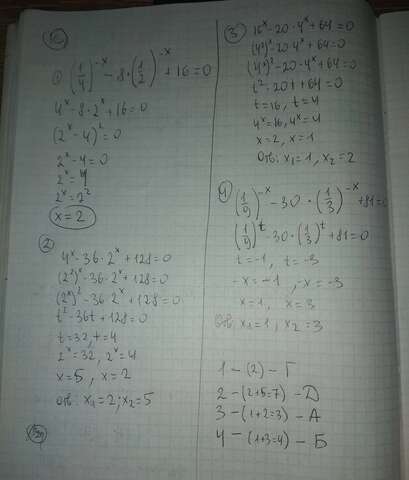 1) (1/4)^-x - 8·(1/2)^-x + 16 = 0
4^x - 8·2^x + 16 = 0
(2^x - 4)^2 = 0
2^x - 4 = 0
2^x = 4
2^x = 2^2
x = 2
2)
4^x - 36·2^x + 128 = 0
(2^2)^x - 36·2^x + 128 = 0
(2^x)^2 - 36·2^x + 128 = 0
t^2 - 36t + 128 = 0
t = 32, t = 4
2^x = 32, 2^x = 4
x = 5, x = 2
Отв: x₁ = 2; x₂ = 5
3) 16^x - 20·4^x + 64 = 0
(4^2)^x - 20·4^x + 64 = 0
(4^x)^2 - 20·4^x + 64 = 0
t^2 - 20t + 64 = 0
t = 16, t = 4
4^x = 16, 4^x = 4
x = 2, x = 1
Отв: x₁ = 1, x₂ = 2
4)
(1/9)^-x - 30·(1/3)^-x + 81 = 0
(1/9)^t - 30·(1/3)^t + 81 = 0
t = -1, t = -3
-x = -1, -x = -3
x = 1, x = 3
Отв: x₁ = 1; x₂ = 3
1 - (2) - Г
2 - (2+5=7) - Д
3 - (1+2=3) - А
4 - (1+3=4) - Б